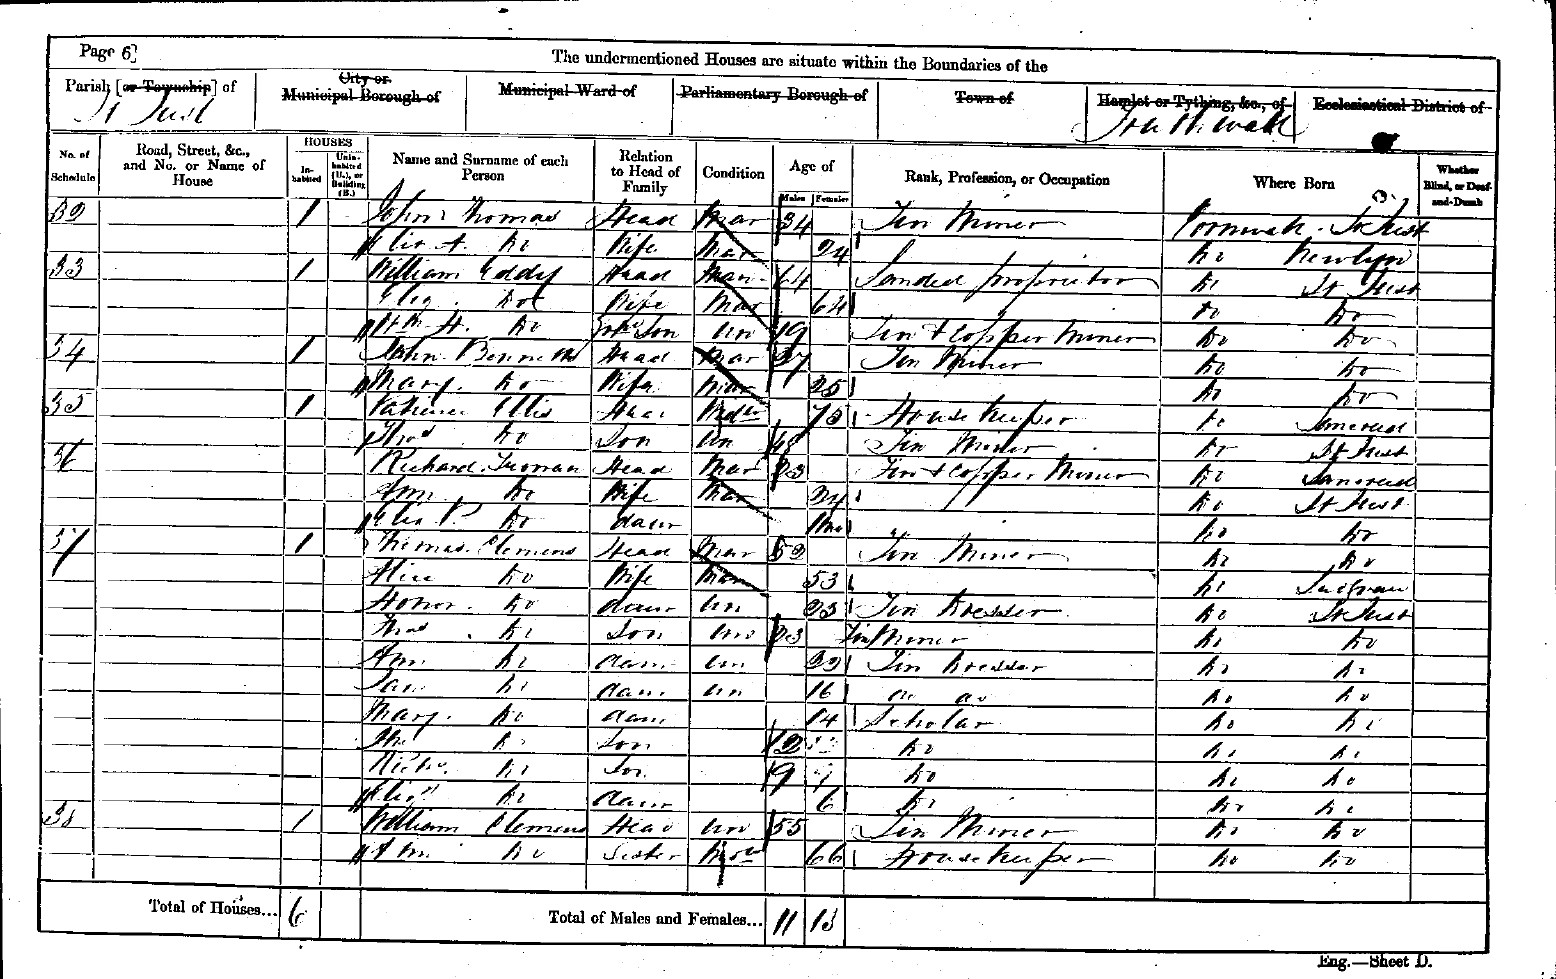 Page 6]
The undermentioned Houses are situate within the Boundaries of the
Parish [or Township] of
City or Municipal Borough of
Municipal Ward of
Parliamentary Borough of
Town of
Hamlet or Tything, &c., of
Ecclesiastical District of
St Just
No. of Schedule
Road, Street, &c., and No. or Name of House
HOUSES
In-habited
Unin-habited (U.), or Building (B.)
Name and Surname of each Person
Relation to Head of Family
Condition
Age of
Males
Females
Rank, Profession, or Occupation
Where Born
Whether Blind, or Deaf-and-Dumb
32 1 John Thomas Head Mar 34 Tin Miner Cornwall St Just
Eliz A. Do Wife Mar 24 Do Newlyn
33 1 William Eddy Head Mar 64 Landed proprietor Do St Just
Eliz Do Wife Mar 64 Do Do
Wm H. Do Son Un 19 Tin & Copper Miner Do Do
34 1 John Bennetts Head Mar 27 Tin Miner Do Do
Mary Do Wife Mar 25 Do Do
35 1 Ellis Head Widw 75 House Keeper Do Sancreed
Thos Do Son Un Tin Miner Do St Just
36 Richard Head Mar 23 Tin & Copper Miner Do Sancreed
Do Wife Mar 24 Do St Just
Eliz P. Do daur 1mo Do Do
37 1 Thomas Clemens Head Mar 52 Tin Miner Do Do
Alice Do Wife Mar 53 Do Ludgvan
Honor Do daur Un 23 Tin Dresser Do St Just
Thos Do Son Un 23 Tin Miner Do Do
Ann Do daur Un Tin Dresser Do Do
Jane Do daur Un 16 do do Do Do
Mary Do daur 14 Scholar Do Do
Do Son 12 Do Do Do
Richd Do Son 9 Do Do Do
Elizth Do daur 6 Do Do Do
38 1 William Clemens Head Un 55 Tin Miner Do Do
Do Sister 66 Housekeeper Do Do
Total of Houses... 6
Total of Males and Females... 11 13
Eng.—Sheet D.